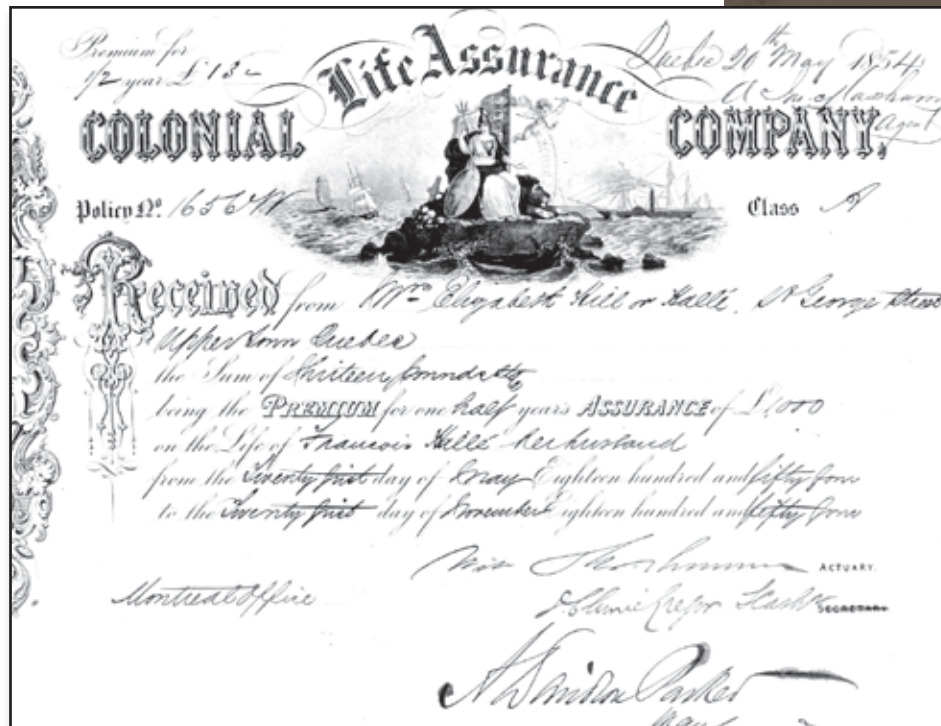 Premium for
1/2 year £13
Quebec 20th May 1854
Agent
Life Assurance
COLONIAL COMPANY,
Policy No. 1656 Class A
Received from Mrs Elizabeth Hill or Hallé, St George Street
Upper Town Quebec
the Sum of Thirteen pounds
being the PREMIUM for one half year's ASSURANCE of £1,000
on the Life of Francois Hallé her husband
from the Twenty first day of May Eighteen hundred and fifty four
to the Twenty first day of November Eighteen hundred and fifty four
ACTUARY.
Montreal Office
SECRETARY.
Parker